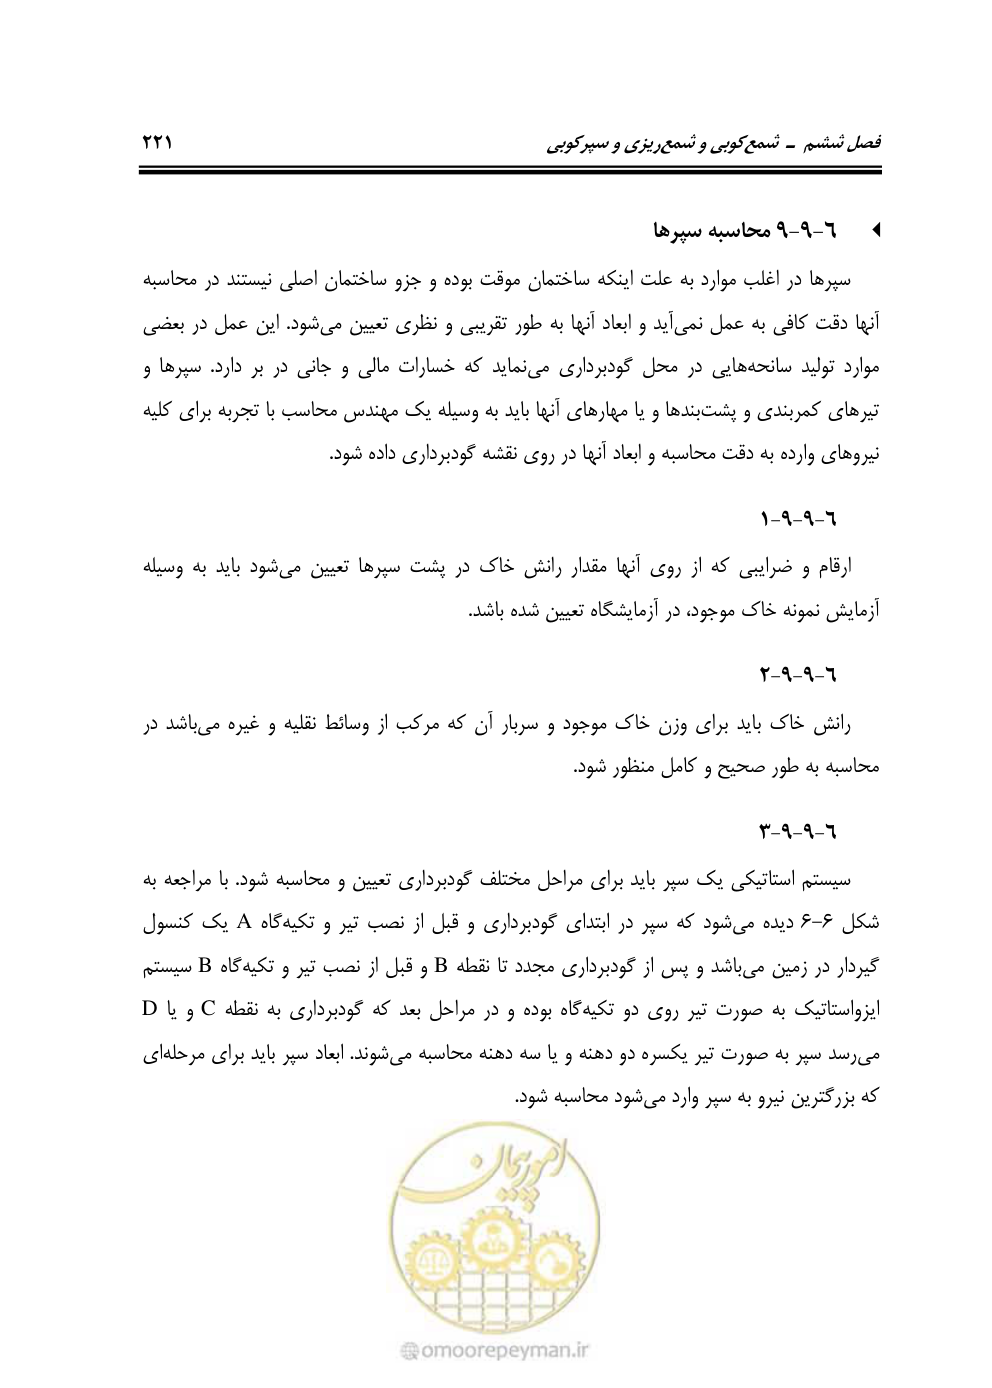 فصل ششم ــ شمع‌کوبی و شمع‌ریزی و سپرکوبی ۲۲۱
۶-۹-۹ محاسبه سپرها
سپرها در اغلب موارد به علت اینکه ساختمان موقت بوده و جزو ساختمان اصلی نیستند در محاسبه
آنها دقت کافی به عمل نمی‌آید و ابعاد آنها به طور تقریبی و نظری تعیین می‌شود. این عمل در بعضی
موارد تولید سانحه‌هایی در محل گودبرداری می‌نماید که خسارات مالی و جانی در بر دارد. سپرها و
تیرهای کمربندی و پشت‌بندها و یا مهارهای آنها باید به وسیله یک مهندس محاسب با تجربه برای کلیه
نیروهای وارده به دقت محاسبه و ابعاد آنها در روی نقشه گودبرداری داده شود.
۶-۹-۹-۱
ارقام و ضرایبی که از روی آنها مقدار رانش خاک در پشت سپرها تعیین می‌شود باید به وسیله
آزمایش نمونه خاک موجود، در آزمایشگاه تعیین شده باشد.
۶-۹-۹-۲
رانش خاک باید برای وزن خاک موجود و سربار آن که مرکب از وسائط نقلیه و غیره می‌باشد در
محاسبه به طور صحیح و کامل منظور شود.
۶-۹-۹-۳
سیستم استاتیکی یک سپر باید برای مراحل مختلف گودبرداری تعیین و محاسبه شود. با مراجعه به
شکل ۶-۶ دیده می‌شود که سپر در ابتدای گودبرداری و قبل از نصب تیر و تکیه‌گاه A یک کنسول
گیردار در زمین می‌باشد و پس از گودبرداری مجدد تا نقطه B و قبل از نصب تیر و تکیه‌گاه B سیستم
ایزواستاتیک به صورت تیر روی دو تکیه‌گاه بوده و در مراحل بعد که گودبرداری به نقطه C و یا D
می‌رسد سپر به صورت تیر یکسره دو دهنه و یا سه دهنه محاسبه می‌شوند. ابعاد سپر باید برای مرحله‌ای
که بزرگترین نیرو به سپر وارد می‌شود محاسبه شود.
امور پیمان
omoorepeyman.ir